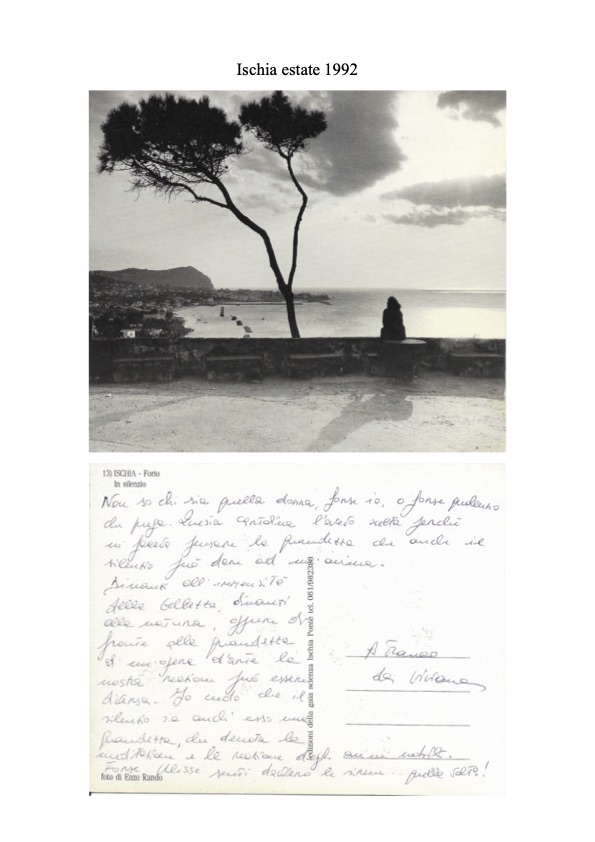 Ischia estate 1992
13) ISCHIA - Forio
In silenzio
Non so chi sia quella donna, forse io, o forse qualcuno
che prega. Questa cartolina l'avevo scelta perché
mi faceva pensare la grandezza che anche il
silenzio può dare ad un'anima.
Dinanti all'immensità
della bellezza, dinanti
alla natura, oppure di
fronte alla grandezza
di un'opera d'arte la
nostra reazione può essere
diversa. Io credo che il
silenzio sia anch'esso una
grandezza, che denota la
meditazione e la reazione degli animi nobili.
Forse Ulisse sentì davvero le sirene quella volta!
A Franco
da Viviana
edizioni della gaia scienza Ischia Ponte tel. 081/982386
foto di Enzo Rando